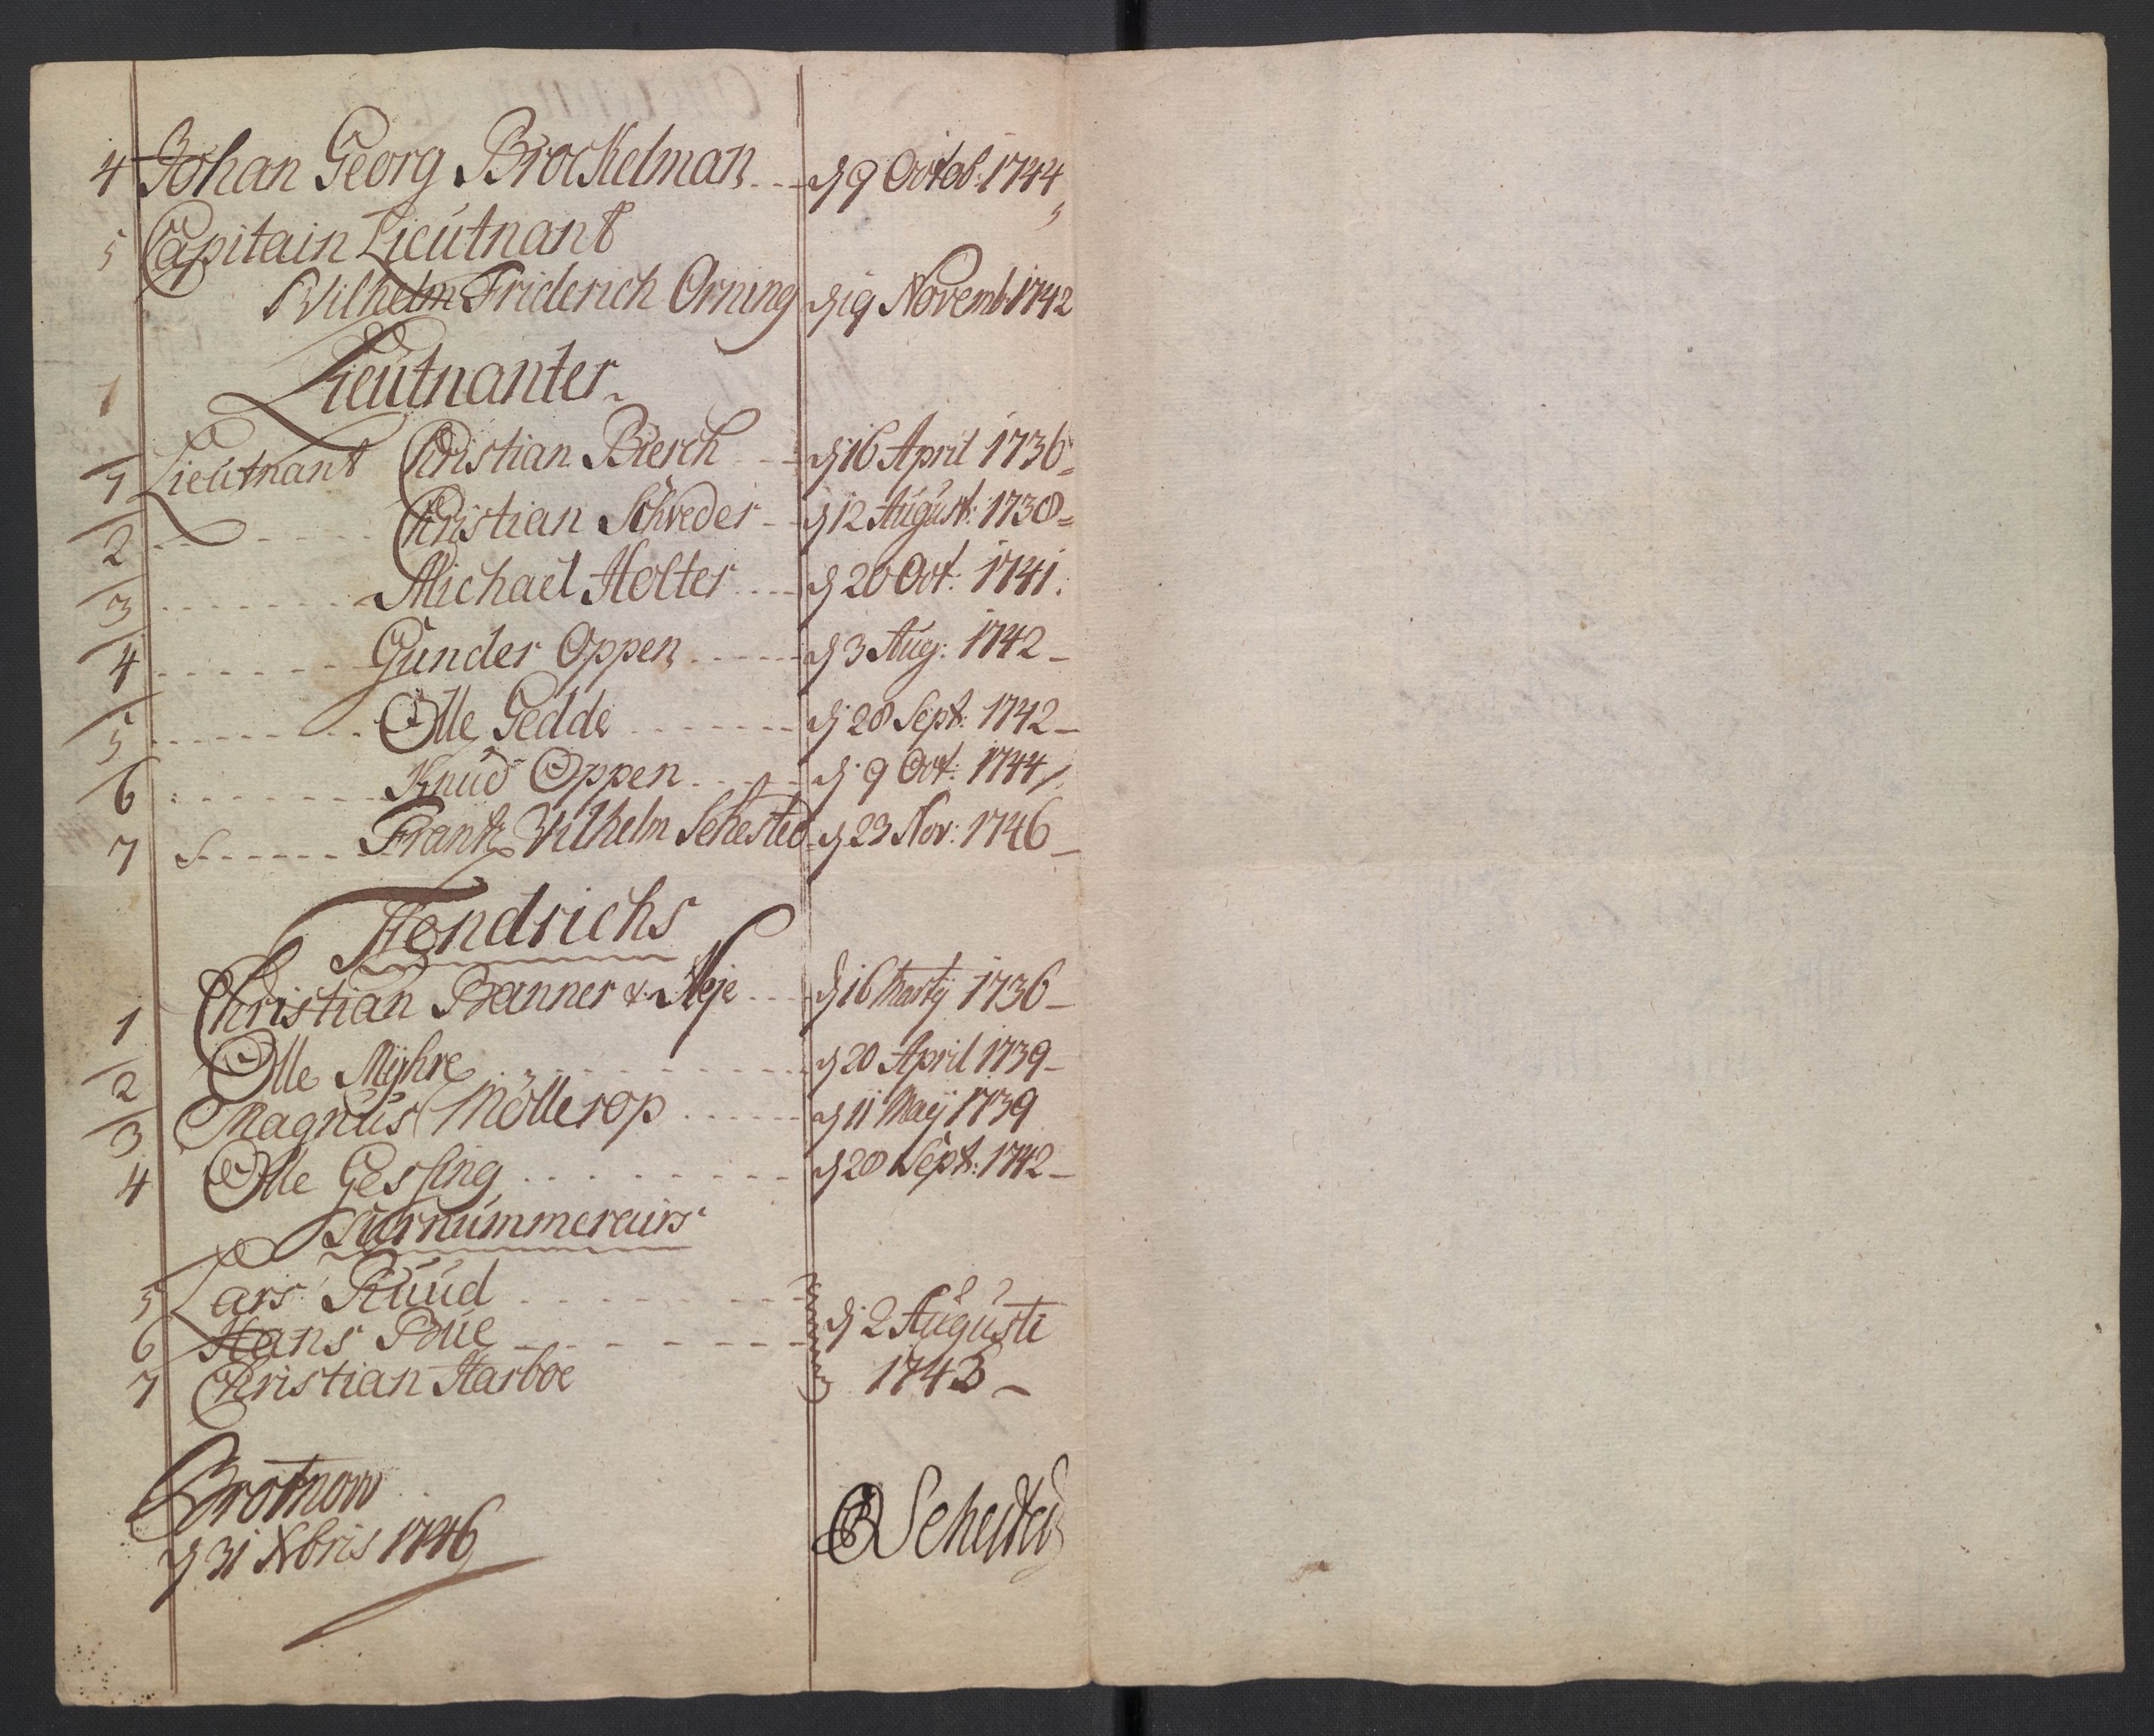 4 Johan Georg Brockelman d 9 Octob: 1744
5 Capitain Lieutnant
Wilhelm Friderich Orning d 19 Novemb 1742
1 Lieutnanter.
1 Lieutnant Christian Biersch d 16 April 1736
2 Christian Schreder d 12 August: 1738
3 Michael Holter d 20 Oct: 1741.
4 Gunder Oppen d 3 Aug: 1742
5 Olle Gedde d 28 Sept: 1742
6 Knud Oppen d 9 Oct: 1744
7 Frantz Wilhelm Sehested d 23 Nov: 1746
Fendrichs
1 Christian Banner v. Heje d 16 Martÿ 1736
2 Olle Mÿhre d 20 April 1739
3 Magnus Möllerop d 11 Maÿ 1739
4 Olle Gessing d 28 Sept: 1742
Surnummerairs
5 Lars Ruud
6 Hans Bue d 2 Augusti
7 Christian Harboe 1743
Brotnow
d 31 Xbris 1746
Sehested